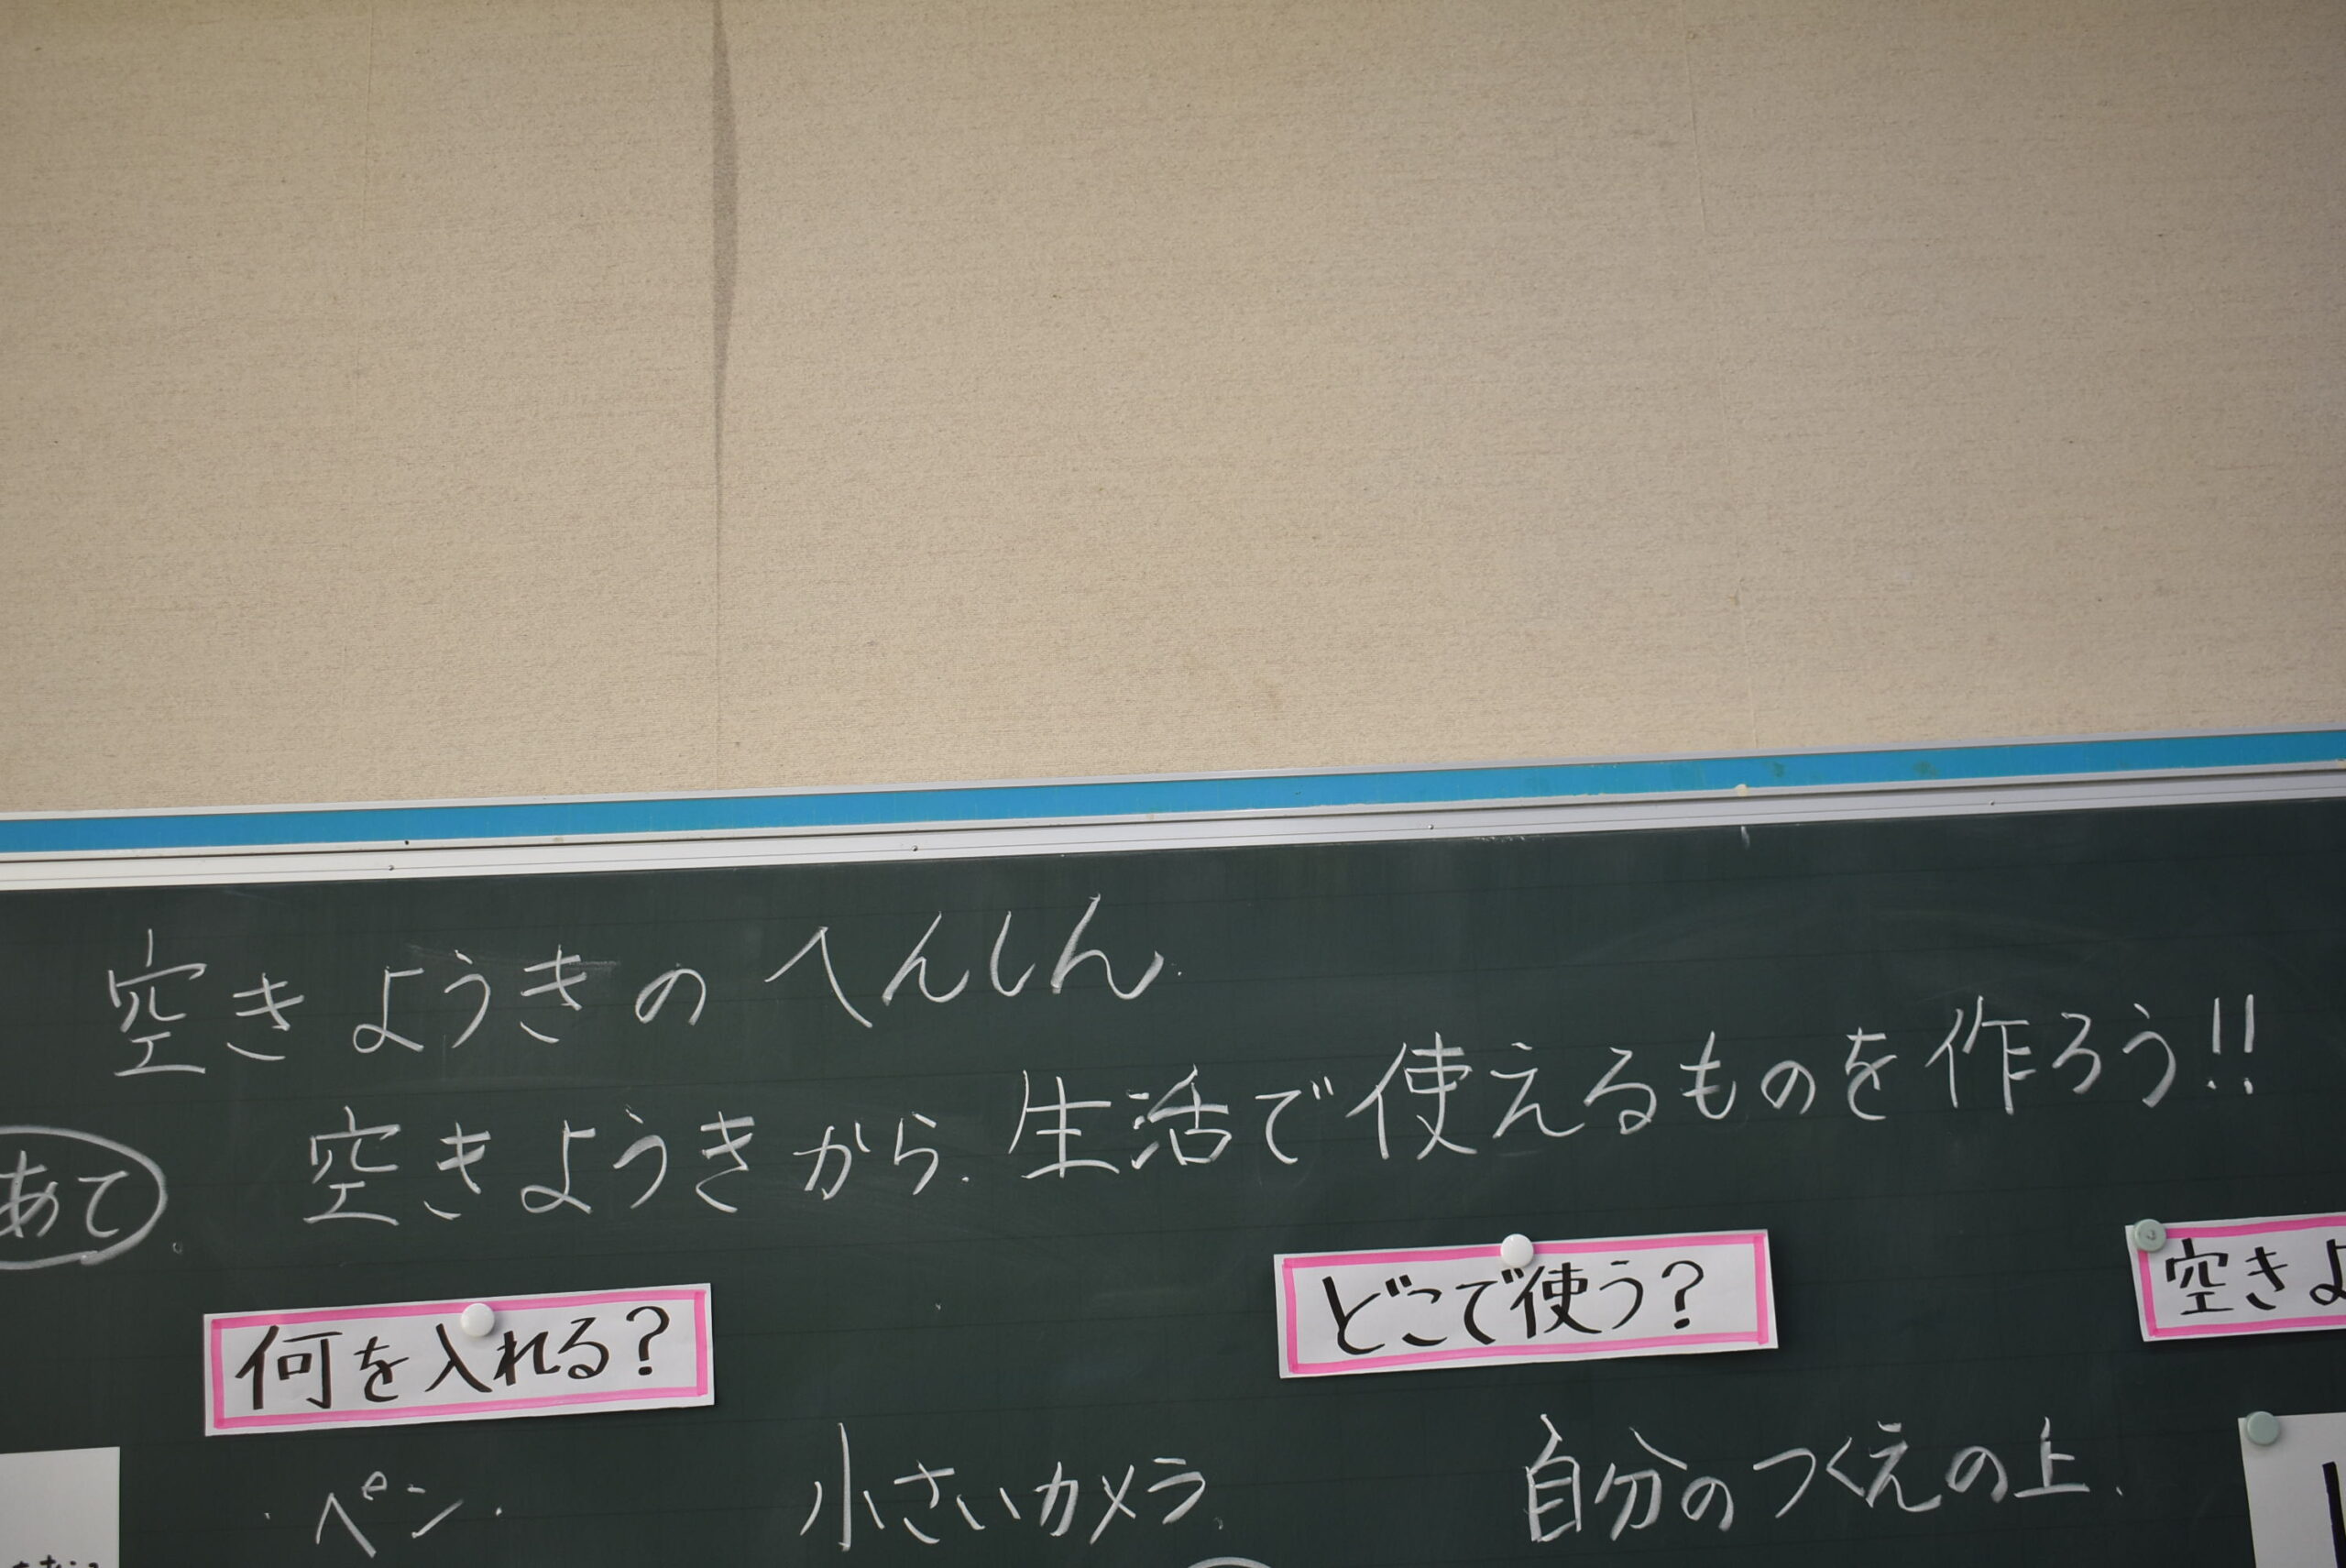 空きようきのへんしん
あて
空きようきから、生活で使えるものを作ろう!!
何を入れる?
どこで使う?
空きよ
・ペン・
小さいカメラ
自分のつくえの上